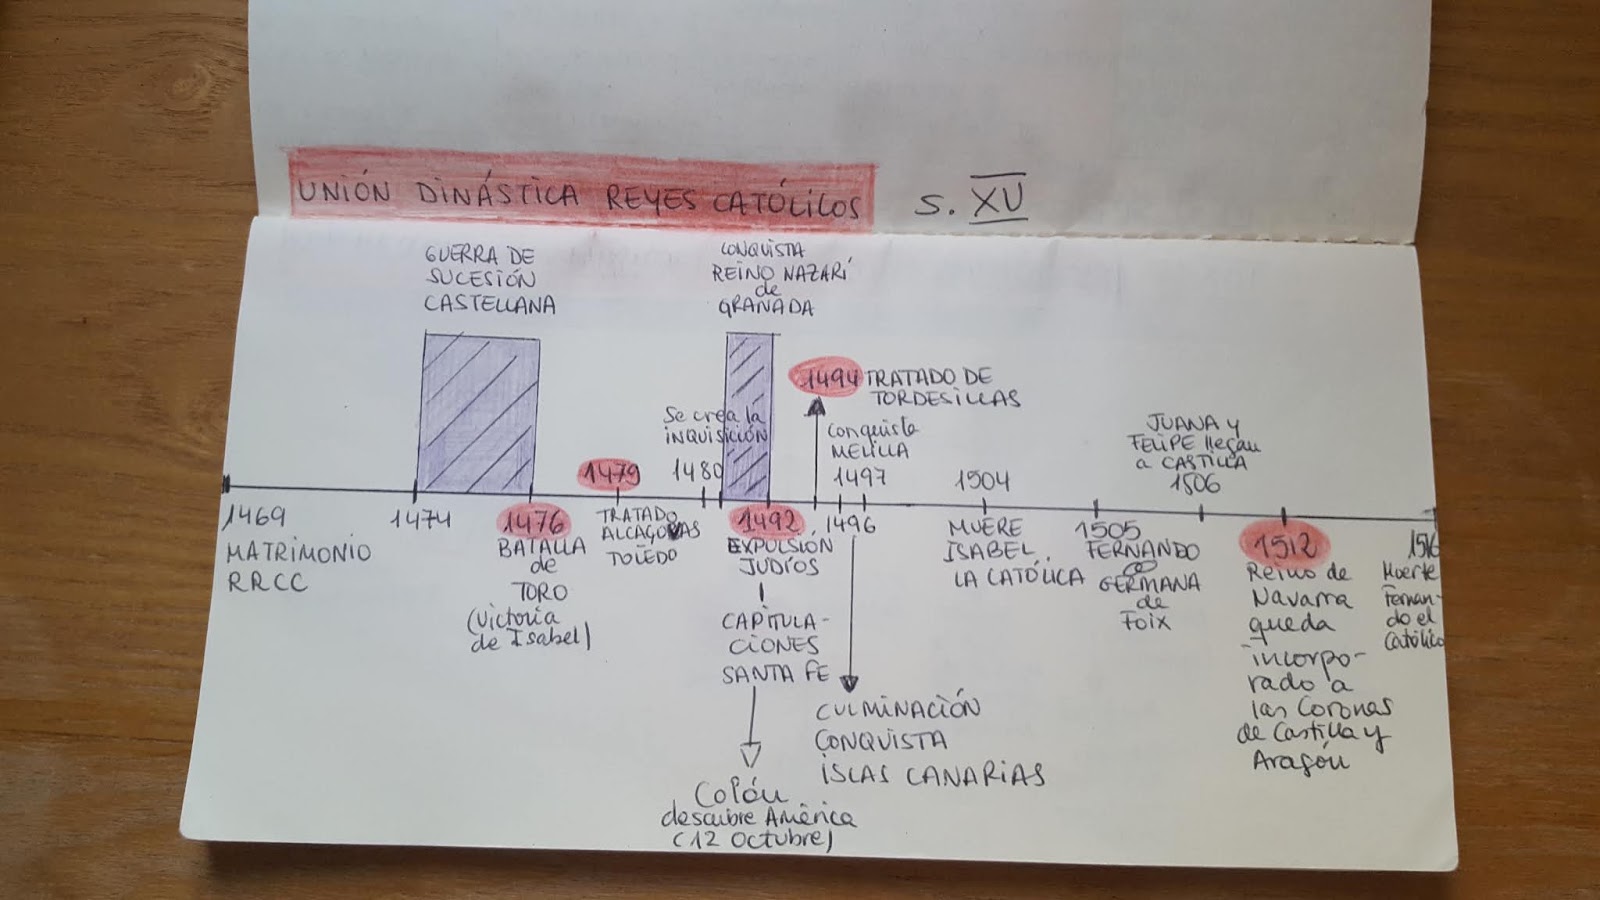 UNIÓN DINÁSTICA REYES CATÓLICOS
S. XV
GUERRA DE
SUCESIÓN
CASTELLANA
CONQUISTA
REINO NAZARÍ
de
GRANADA
1494 TRATADO DE
TORDESILLAS
Se crea la
INQUISICIÓN
1480
Conquista
MELILLA
1497
JUANA y
FELIPE llegan
a CASTILLA
1506
1479
1504
1469
MATRIMONIO
RRCC
1474
1476
BATALLA
de
TORO
(victoria
de Isabel)
TRATADO
ALCAÇOVAS
TOLEDO
1492
EXPULSIÓN
JUDÍOS
CAPITULA-
CIONES
SANTA FE
Colón
descubre América
(12 Octubre)
1496
CULMINACIÓN
CONQUISTA
ISLAS CANARIAS
MUERE
ISABEL
LA CATÓLICA
1505
FERNANDO
GERMANA
de
FOIX
1512
Reino de
Navarra
queda
incorpo-
rado a
las Coronas
de Castilla y
Aragón
1516
Muerte
Fernan-
do el
Católico